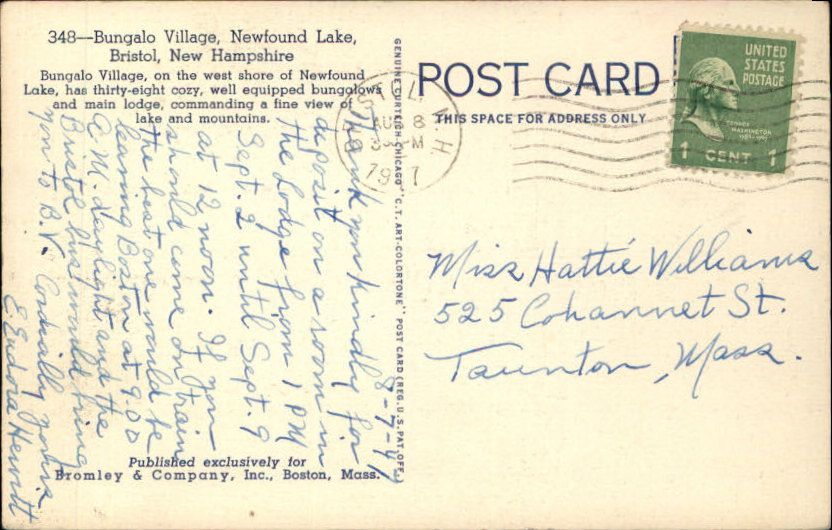 348--Bungalo Village, Newfound Lake,
Bristol, New Hampshire
Bungalo Village, on the west shore of Newfound
Lake, has thirty-eight cozy, well equipped bungalows
and main lodge, commanding a fine view of
lake and mountains.
8-7-47
Thank you kindly for
deposit on a room in
the Lodge from 1 PM
Sept. 2 until Sept. 9
at 12 noon. If you
should come on train
the best one would be
leaving Boston at 9.00
A.M. daylight and the
Bristol bus would bring
you to B.V. Cordially yours
E. Eudora Hewitt
Published exclusively for
Bromley & Company, Inc., Boston, Mass.
GENUINE CURTEICH-CHICAGO "C.T. ART-COLORTONE" POST CARD (REG. U.S. PAT. OFF.)
POST CARD
THIS SPACE FOR ADDRESS ONLY
BRISTOL N.H.
AUG 8
PM
UNITED
STATES
POSTAGE
GEORGE
WASHINGTON
1 CENT 1
Miss Hattie Williams
525 Cohannet St.
Taunton, Mass.